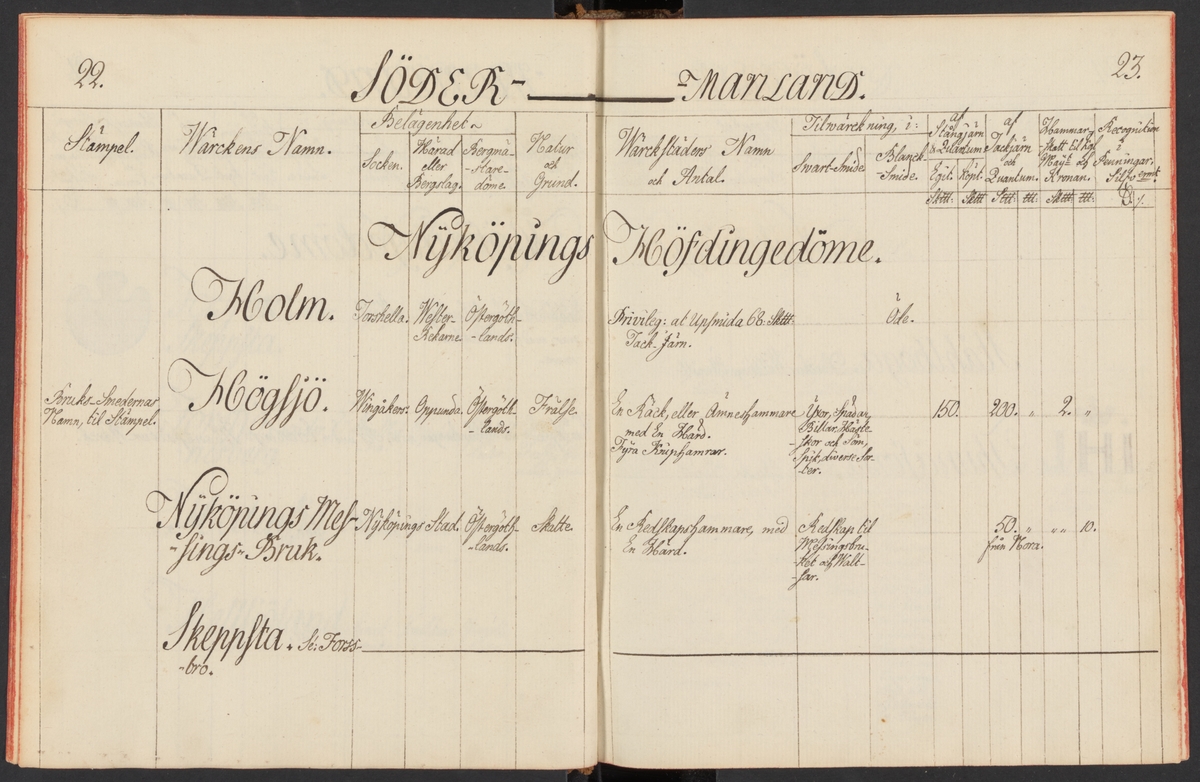 22.
SÖDER-
MANLAND.
23.
Stämpel.
Wärckens Namn.
Belägenhet
Socken.
Härad
eller
Bergslag.
Bergmä-
-stare-
döme.
Natur
och
Grund.
Wärckstäders Namn
och Antal.
Tilwärckning, i:
Swart-Smide
Blanck-
-Smide.
af
Stångjärn
Egit.
Köpt.
af
Tackjärn
och
Quantum.
Hammar-
Skatt til Kgl
Maÿt och
Kronan.
Recognition
i
Penningar.
Silf. mt.
Sktt: Sktt Sktt: tt: Sktt tt:
Nÿköpings Höfdingedöme.
Holm.
Torshella.
Wester-
Rekarne
Östergöth-
-lands.
Privileg: at Upsmida 68. Sktt
Tack-Järn.
Öde.
Bruks-Smedernas
Namn, til Stämpel.
Högsjö.
Wingåkers.
Oppunda.
Östergöth-
-lands.
Frälse.
En Räck, eller Ämneshammare
med En Härd.
Fÿra Kniphamrar.
Yxor, Spadar,
Billar, Häste-
-skor och Söm,
Spik, diverse Sor-
-ter.
150.
200. "
2. "
Nÿköpings Mes-
-sings-Bruk.
Nÿköpings Stad.
Östergöth-
-lands.
Skatte.
En Redskapshammare, med
En Härd.
Redskap til
Messingsbru-
-ket och Walt-
-sar.
50. "
från Nora.
" " 10.
Skeppsta. Se: Forss-
-bro.